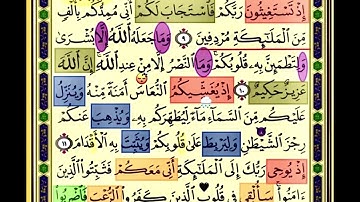 إِذْ تَسْتَغِيثُونَ رَبَّكُمْ فَٱسْتَجَابَ لَكُمْ أَنِّى مُمِدُّكُم بِأَلْفٍ
مِّنَ ٱلْمَلَـٰٓئِكَةِ مُرْدِفِينَ ٩ وَمَا جَعَلَهُ ٱللَّهُ إِلَّا بُشْرَىٰ
وَلِتَطْمَئِنَّ بِهِۦ قُلُوبُكُمْ وَمَا ٱلنَّصْرُ إِلَّا مِنْ عِندِ ٱللَّهِ إِنَّ ٱللَّهَ
عَزِيزٌ حَكِيمٌ ١٠ إِذْ يُغَشِّيكُمُ ٱلنُّعَاسَ أَمَنَةً مِّنْهُ وَيُنَزِّلُ
عَلَيْكُم مِّنَ ٱلسَّمَآءِ مَآءً لِّيُطَهِّرَكُم بِهِۦ وَيُذْهِبَ عَنكُمْ
رِجْزَ ٱلشَّيْطَـٰنِ وَلِيَرْبِطَ عَلَىٰ قُلُوبِكُمْ وَيُثَبِّتَ بِهِ ٱلْأَقْدَامَ ١١
إِذْ يُوحِى رَبُّكَ إِلَى ٱلْمَلَـٰٓئِكَةِ أَنِّى مَعَكُمْ فَثَبِّتُوا۟ ٱلَّذِينَ
ءَامَنُوا۟ سَأُلْقِى فِى قُلُوبِ ٱلَّذِينَ كَفَرُوا۟ ٱلرُّعْبَ فَٱضْرِبُوا۟